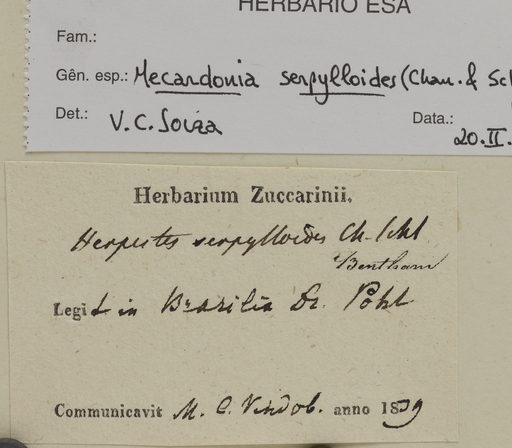 HERBÁRIO ESA
Fam.:
Gên. esp.: Mecardonia serpylloides (Cham. & Sch
Det.: V. C. Souza
Data.: 20.II.
Herbarium Zuccarinii.
Herpestes serpylloides Ch. Schl
Bentham
Legit in Brasilia Dr. Pohl
Communicavit M. C. Vindob. anno 1839